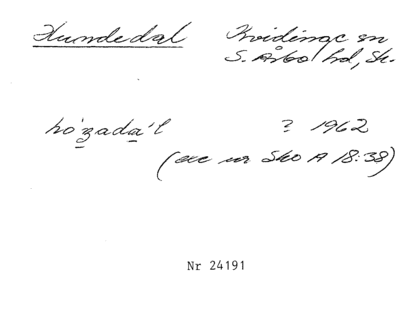 Hundedal Kvidinge sn
S. Åsbo hd, Sk.
hó'zada'l ? 1962
(exc ur Sko A 18:38)
Nr 24191